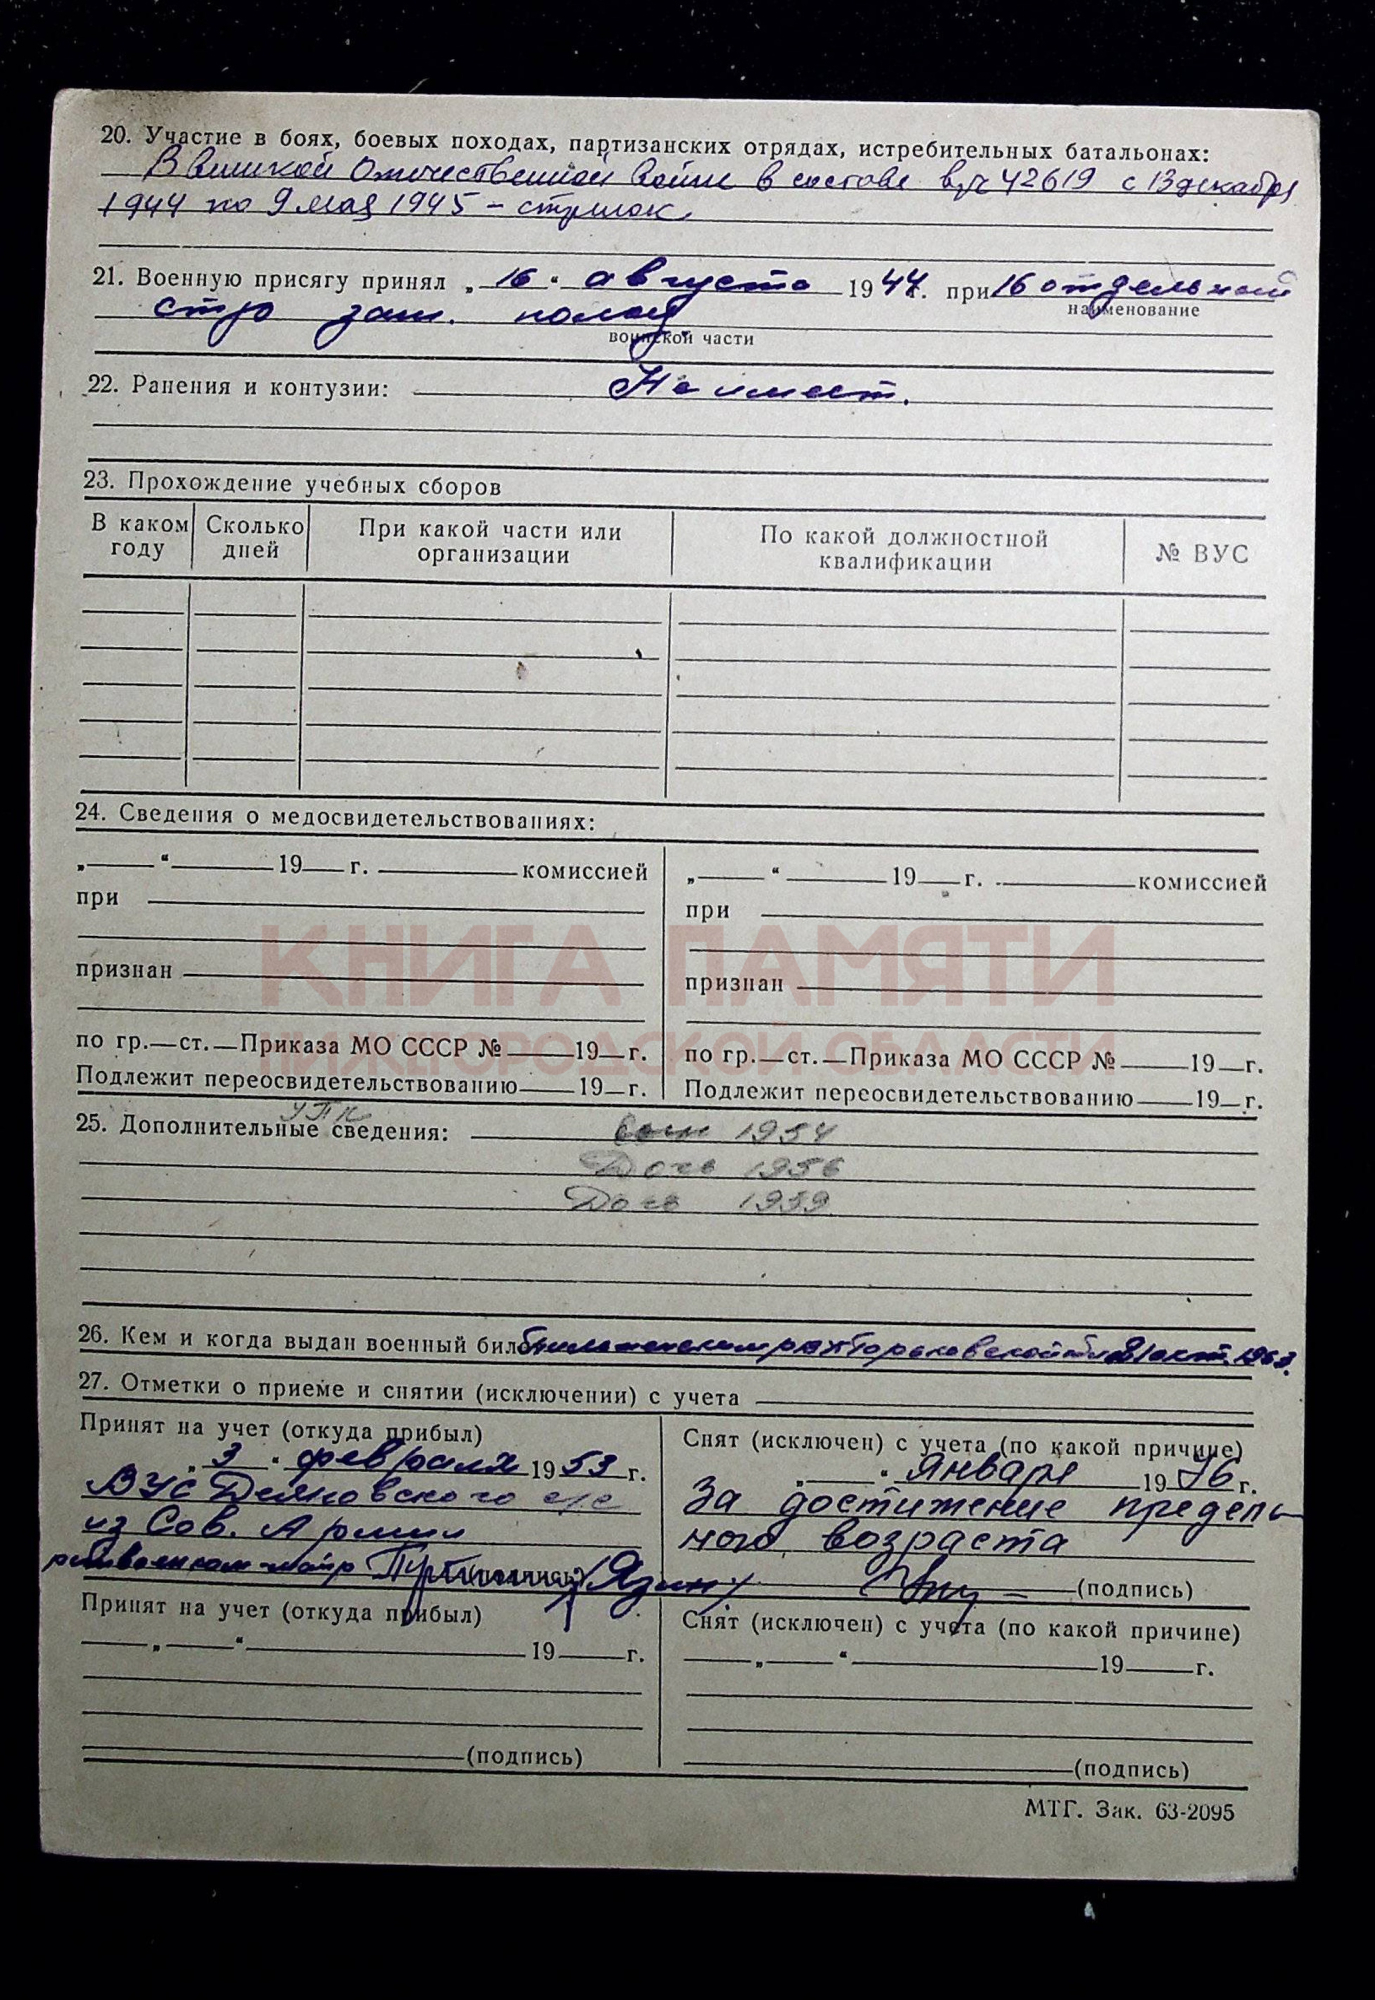 20. Участие в боях, боевых походах, партизанских отрядах, истребительных батальонах:
В Великой Отечественной войне в составе в/ч 42619 с 13 декабря
1944 по 9 мая 1945 – стрелок
21. Военную присягу принял „16“ августа 1944 г. при 16 отдельном
наименование
стр. зап. полку
воинской части
22. Ранения и контузии: Не имеет.
23. Прохождение учебных сборов
В каком году Сколько дней При какой части или организации По какой должностной квалификации № ВУС
24. Сведения о медосвидетельствованиях:
„ “ 19 г. комиссией „ “ 19 г. комиссией
при при
признан признан
КНИГА ПАМЯТИ
НИЖЕГОРОДСКОЙ ОБЛАСТИ
по гр. ст. Приказа МО СССР № 19 г. по гр. ст. Приказа МО СССР № 19 г.
Подлежит переосвидетельствованию 19 г. Подлежит переосвидетельствованию 19 г.
УПК
25. Дополнительные сведения: Сын 1954
Дочь 1956
Дочь 1959
26. Кем и когда выдан военный билет
27. Отметки о приеме и снятии (исключении) с учета
Принят на учет (откуда прибыл) Снят (исключен) с учета (по какой причине)
„3“ февраля 1953 г. „ “ Января 1976 г.
ВУС с/с За достижение предель-
из Сов. Армии ного возраста
майор (подпись) (подпись)
Принят на учет (откуда прибыл) Снят (исключен) с учета (по какой причине)
„ “ 19 г. „ “ 19 г.
(подпись) (подпись)
МТГ. Зак. 63-2095